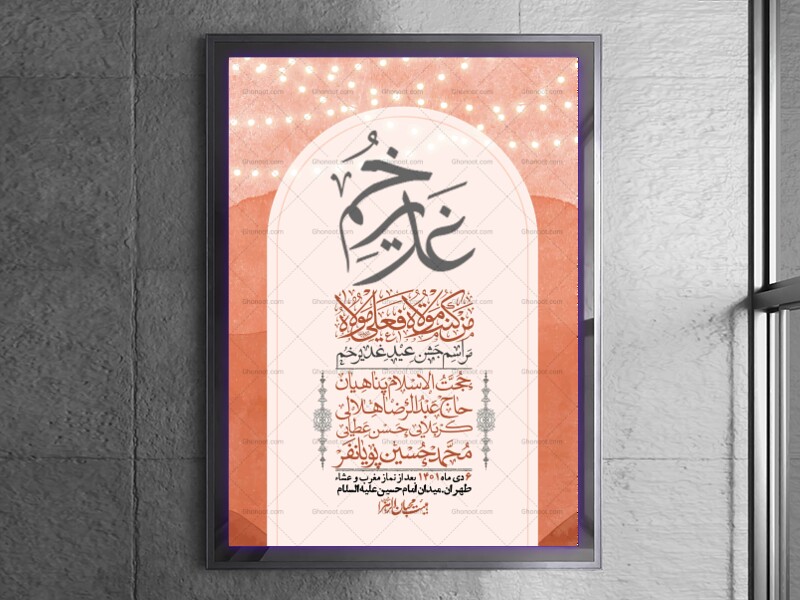 غدیر خم
من کنت مولاه فعلی مولاه
مراسم جشن عید غدیر خم
حجت الاسلام پناهیان
حاج عبدالرضا هلالی
کربلایی حسن عطایی
محمد حسین پویانفر
۶ دی ماه ۱۴۰۱ بعد از نماز مغرب و عشاء
طهران، میدان امام حسین علیه السلام
Ghonoot.com